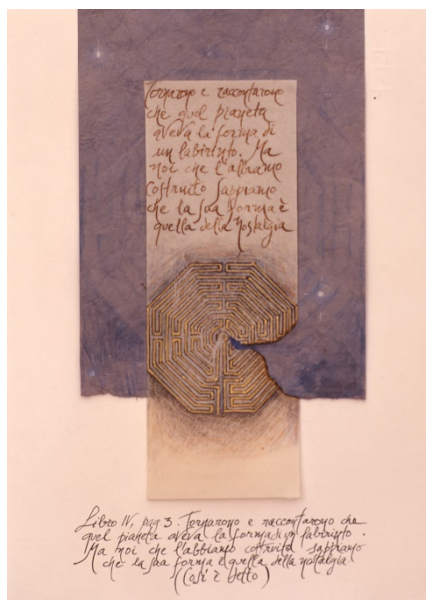 Tornarono e raccontarono
che quel pianeta
aveva la forma di
un labirinto. Ma
noi che l'abbiamo
costruito sappiamo
che la sua forma è
quella della nostalgia
Libro IV, pag 3. Tornarono e raccontarono che
quel pianeta aveva la forma di un labirinto.
Ma noi che l'abbiamo costruito sappiamo
che la sua forma è quella della nostalgia
(Così è detto)